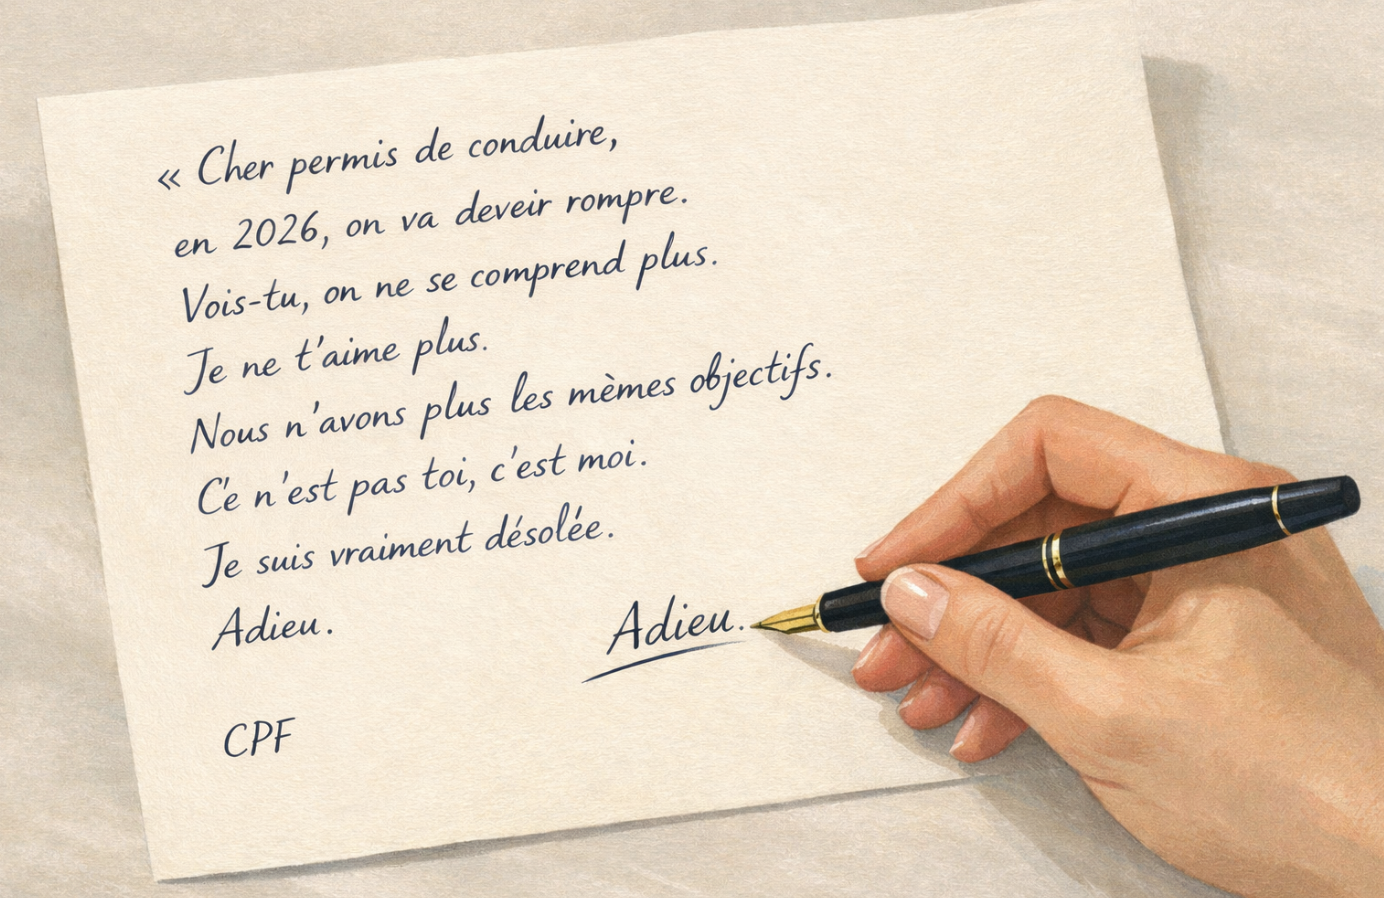 « Cher permis de conduire,
en 2026, on va deveir rompre.
Vois-tu, on ne se comprend plus.
Je ne t'aime plus.
Nous n'avons plus les mèmes objectifs.
C'e n'est pas toi, c'est moi.
Je suis vraiment désolée.
Adieu. Adieu.
CPF